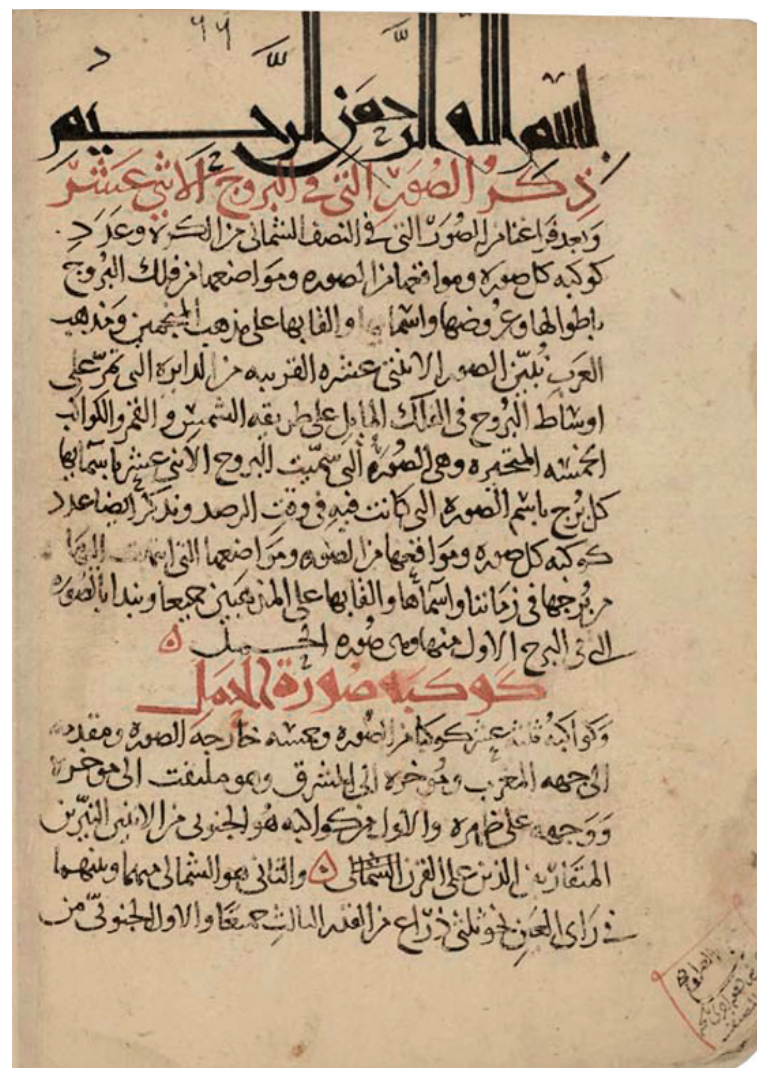 بسم الله الرحمن الرحيم
ذكر الصور التي في البروج الاثني عشر
وبعد فراغنا من الصور التي في النصف الشمالي من الكرة وعدد
كوكبه كل صورة ومواقعها من الصوره ومواضعها من فلك البروج
باطوالها وعروضها واسمايها والقابها على مذهب المنجمين ومذهب
العرب نبين الصور الاثنتى عشره القريبه من الدايرة التى تمر على
اوساط البروج فى الفلك المايل على طريقه الشمس والقمر والكواكب
الخمسه المتحيره وهى الصورة التى سميت البروج الاثنى عشر باسمايها
كل برج باسم الصورة التى كانت فيه فى وقت الرصد ونذكر ايضا عدد
كوكبه كل صوره ومواقعها من الصوره ومواضعها التى انتهت اليها
من برجها فى زماننا واسماها والقابها على المذهبين جميعا ونبدا بالصوره
التى فى البرج الاول منها وهى صوره الحمل
كوكبه صورة الحمل
وكواكبه ثلثة عشر كوكبا من الصوره وخمسه خارجه الصوره ومقدمه
الى جهه المغرب وموخره الى المشرق وهو ملتفت الى موخره
ووجهه على ظهره والاول من كواكبه هو الجنوبى من الاثنين النيرين
المتقاربين الذين على القرن الشمالى والثانى هو الشمالى منهما وبينهما
فى راى العين نحو ثلثى ذراع من القدر الثالث جميعا والاول الجنوبى من